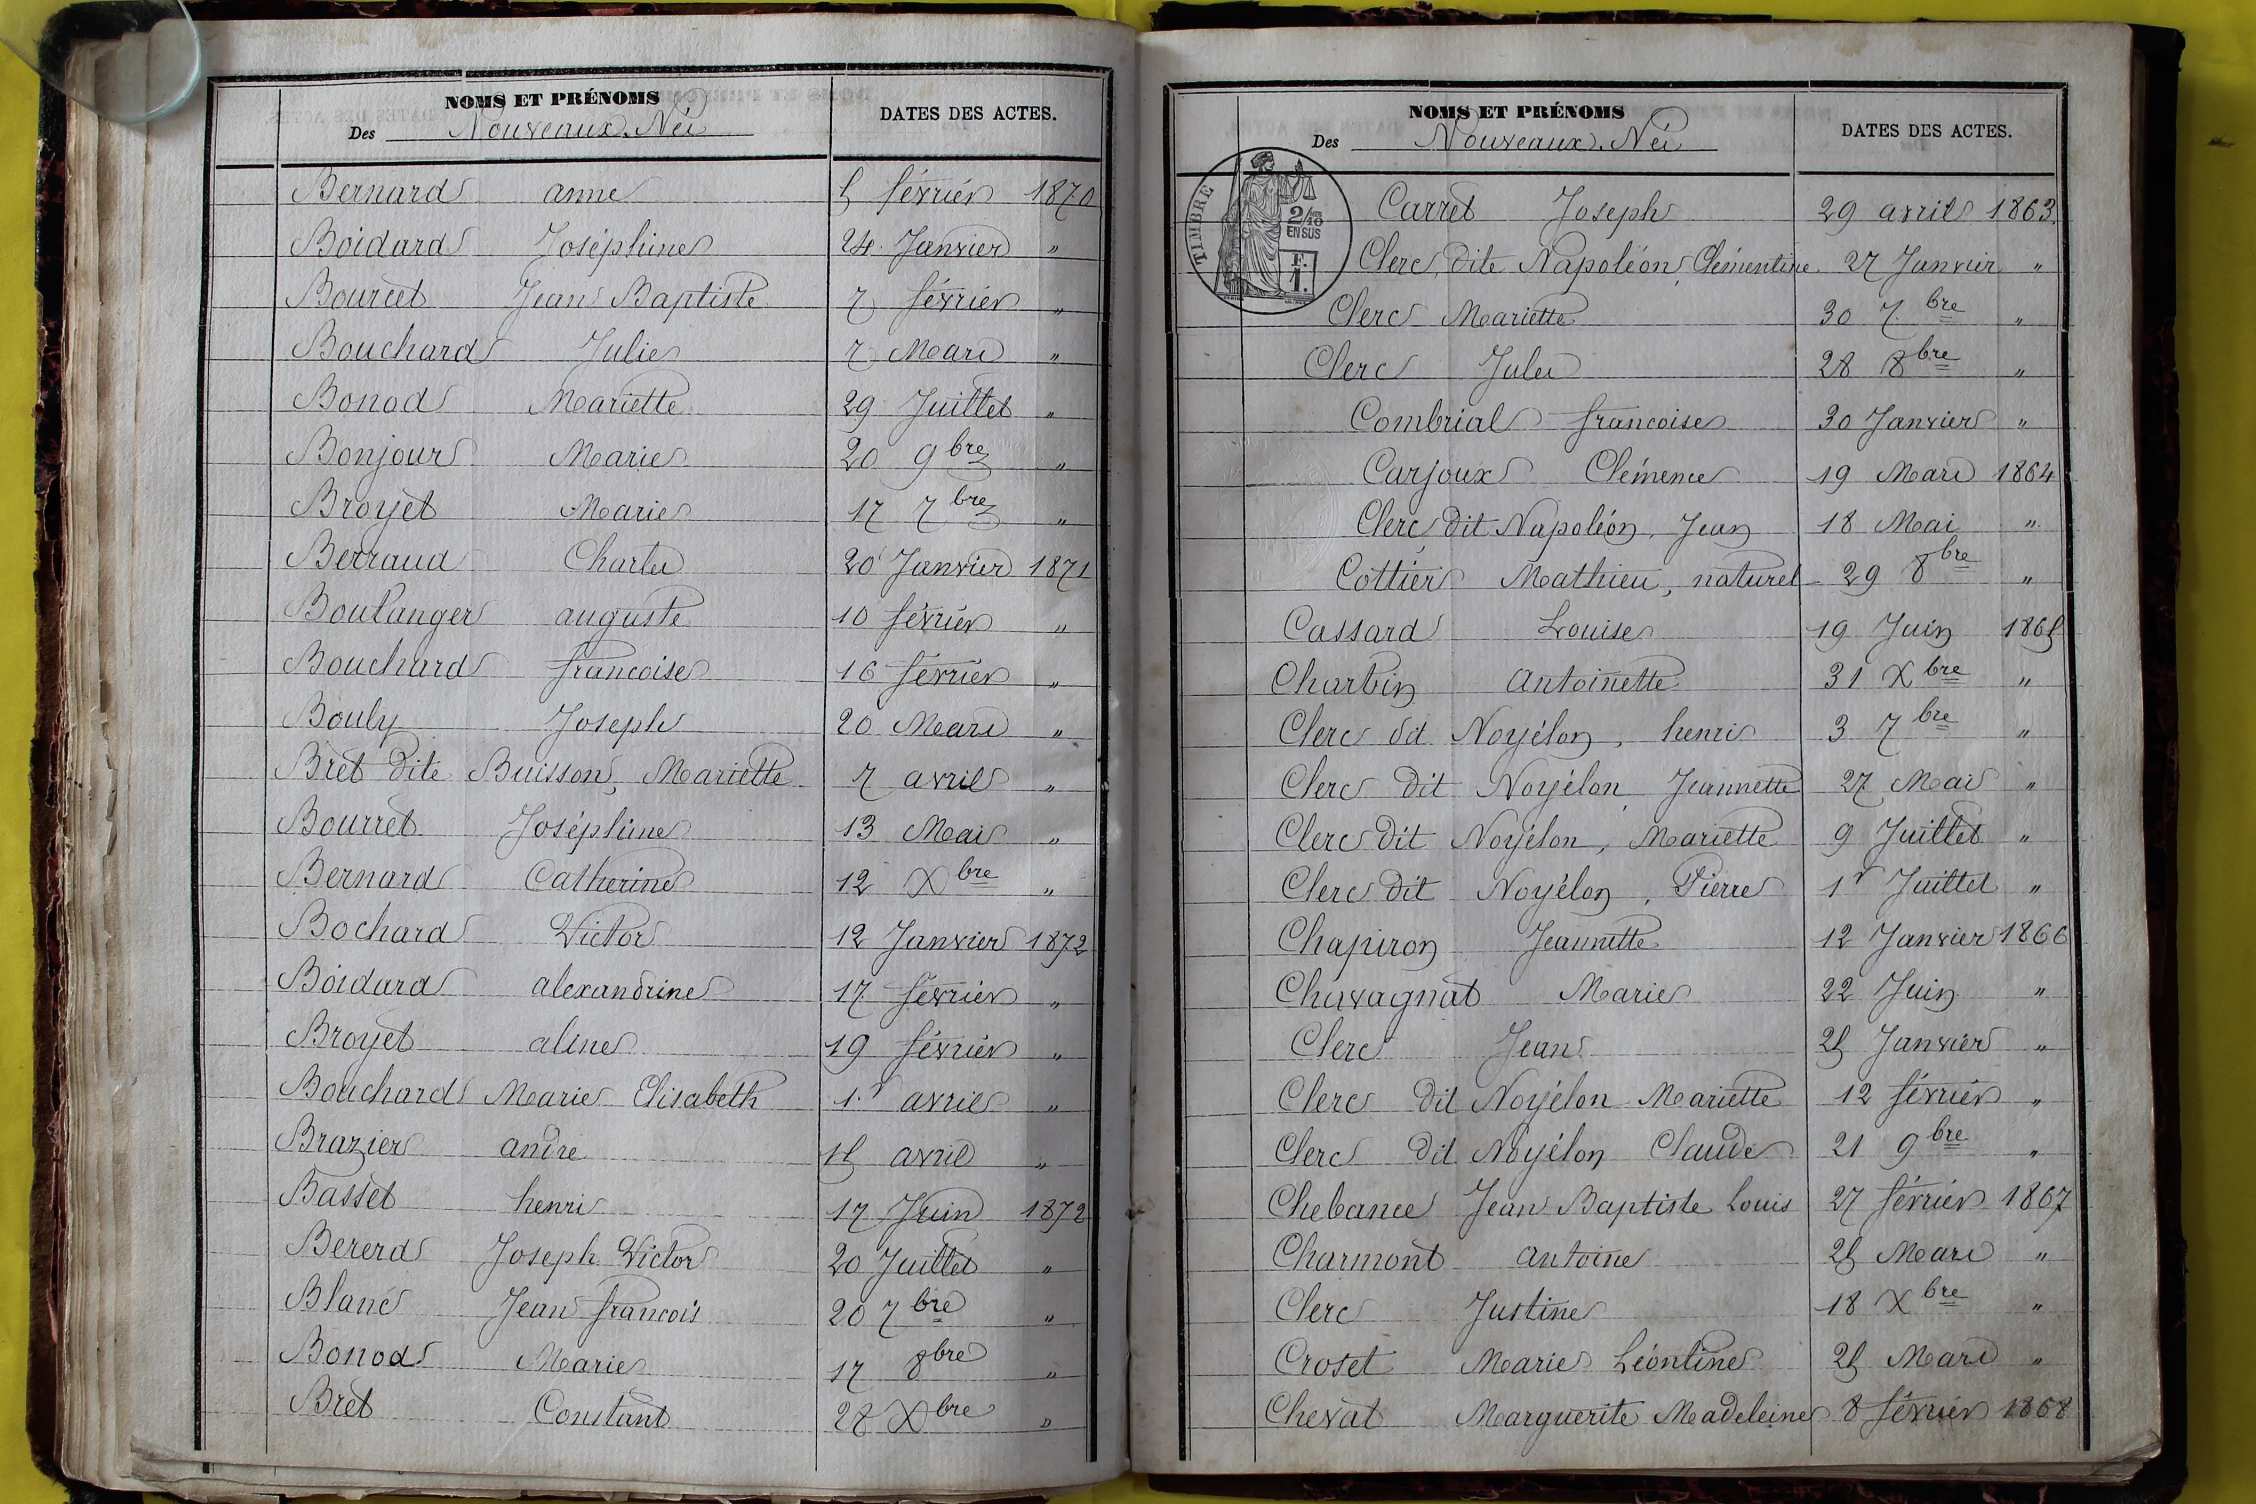 NOMS ET PRÉNOMS
Des Nouveaux-Nés
DATES DES ACTES.
Bernard anne 5 février 1870
Boidard Joséphine 24 Janvier "
Bourcet Jean Baptiste 7 février "
Bouchard Julie 7 Mars "
Bonod Mariette 29 Juillet "
Bonjour Marie 20 9bre "
Broyet Marie 17 7bre "
Berraud Charles 20 Janvier 1871
Boulanger auguste 10 février "
Bouchard francoise 16 février "
Bouly Joseph 20 Mars "
Bret dite Buisson, Mariette 7 avril "
Bourret Joséphine 13 Mai "
Bernard Catherine 12 Xbre "
Bochard Victor 12 Janvier 1872
Boidard alexandrine 17 février "
Broyet aline 19 février "
Bouchard Marie Elisabeth 1r avril "
Brazier andre 15 avril "
Basset henri 17 Juin 1872
Bererd Joseph Victor 20 Juillet "
Blanc Jean francois 20 7bre "
Bonod Marie 17 8bre "
Bret Constant 28 Xbre "
NOMS ET PRÉNOMS
Des Nouveaux-Nés
DATES DES ACTES.
TIMBRE
2/10
EN SUS
F.
1.
Carret Joseph 29 avril 1863
Clerc dite Napoléon, Clémentine 27 Janvier "
Clerc Mariette 30 7bre "
Clerc Jules 28 8bre "
Combrial francoise 30 Janvier "
Carjoux Clémence 19 Mars 1864
Clerc dit Napoléon, Jean 18 Mai "
Cottier Mathieu, naturel 29 8bre "
Cassard Louise 19 Juin 1865
Charbin Antoinette 31 Xbre "
Clerc dit Noyélon, henri 3 7bre "
Clerc dit Noyélon, Jeannette 27 Mai "
Clerc dit Noyélon, Mariette 9 Juillet "
Clerc dit Noyélon, Pierre 1r Juillet "
Chapiron Jeannette 12 Janvier 1866
Chavagnat Marie 22 Juin "
Clerc Jean 25 Janvier "
Clerc dit Noyélon Mariette 12 février "
Clerc dit Noyélon Claude 21 9bre "
Chebance Jean Baptiste Louis 27 février 1867
Charmont antoine 25 Mars "
Clerc Justine 18 Xbre "
Croset Marie Léontine 25 Mars "
Chevat Marguerite Madeleine 8 février 1868